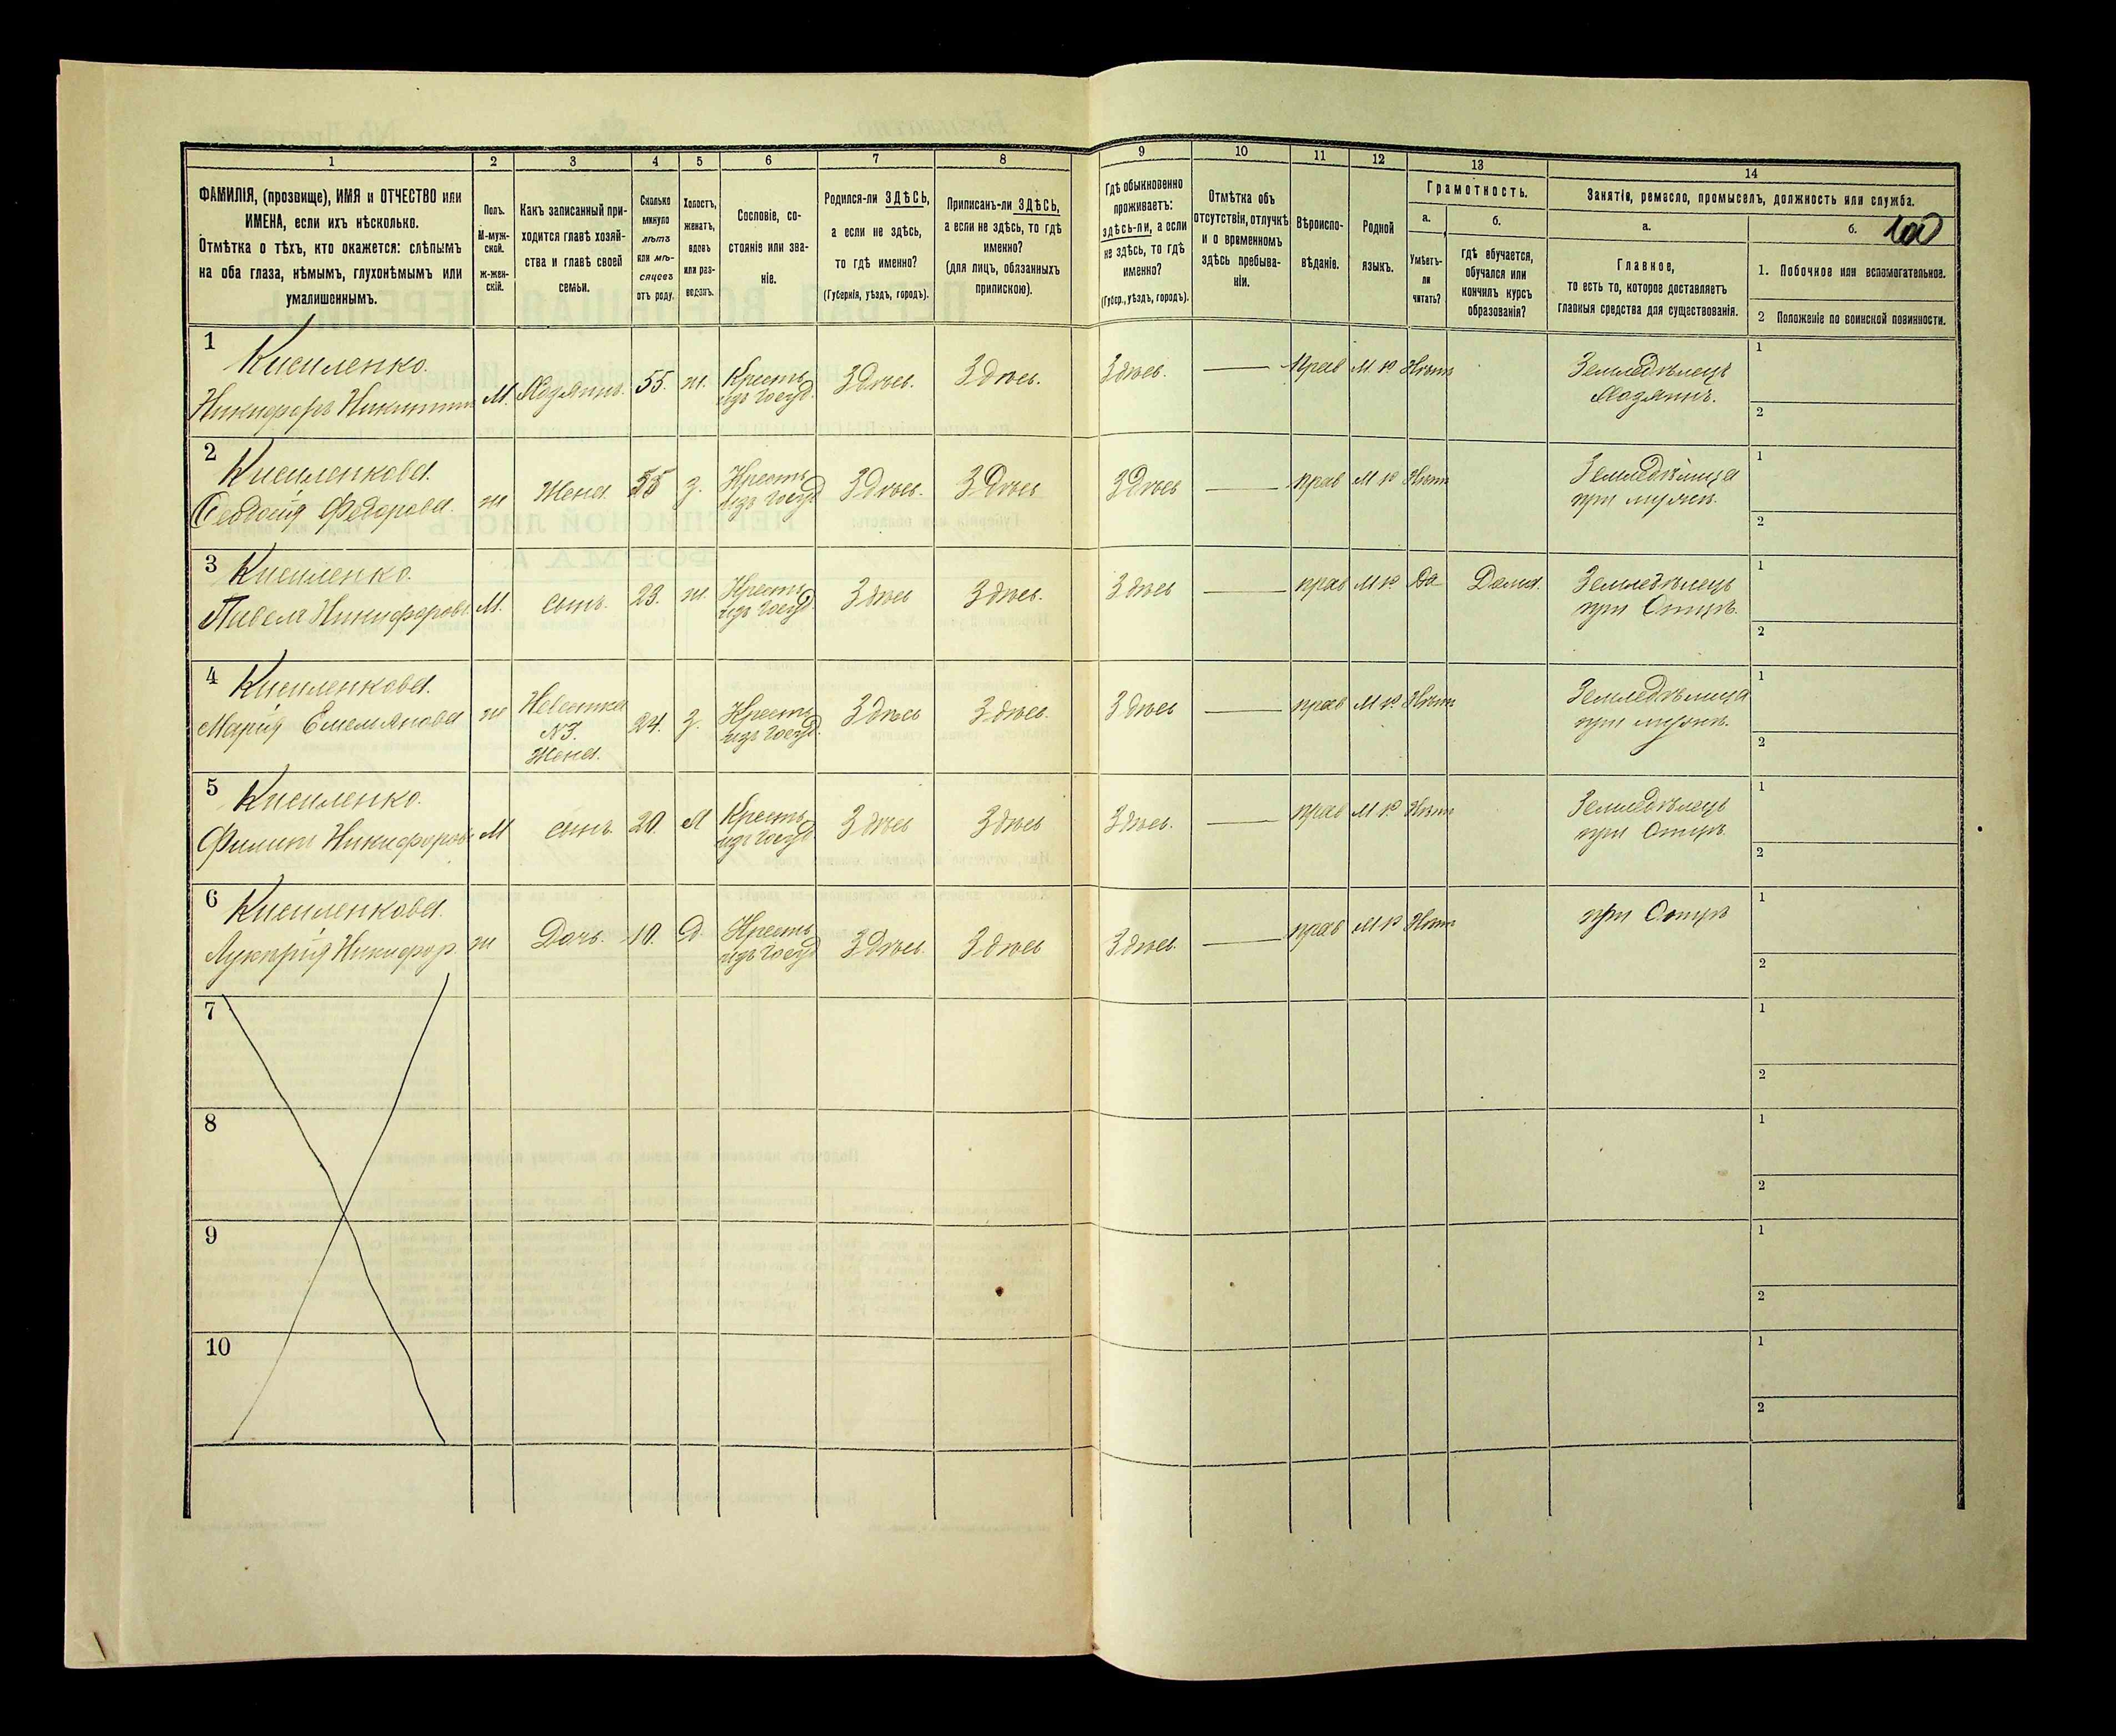 1 2 3 4 5 6 7 8 9 10 11 12 13 14
ФАМИЛІЯ, (прозвище), ИМЯ и ОТЧЕСТВО или
ИМЕНА, если ихъ нѣсколько.
Отмѣтка о тѣхъ, кто окажется: слѣпымъ
на оба глаза, нѣмымъ, глухонѣмымъ или
умалишеннымъ.
Полъ.
М-муж-
ской.
ж-жен-
скій.
Какъ записанный при-
ходится главѣ хозяй-
ства и главѣ своей
семьи.
Сколько
минуло
лѣтъ
или мѣ-
сяцевъ
отъ роду.
Холостъ,
женатъ,
вдовъ
или раз-
веденъ.
Сословіе, со-
стояніе или зва-
ніе.
Родился-ли ЗДѢСЬ,
а если не здѣсь,
то гдѣ именно?
(Губернія, уѣздъ, городъ).
Приписанъ-ли ЗДѢСЬ,
а если не здѣсь, то гдѣ
именно?
(для лицъ, обязанныхъ
припискою).
Гдѣ обыкновенно
проживаетъ:
здѣсь-ли, а если
не здѣсь, то гдѣ
именно?
(Губер., уѣздъ, городъ).
Отмѣтка объ
отсутствіи, отлучкѣ
и о временномъ
здѣсь пребыва-
ніи.
Вѣроиспо-
вѣданіе.
Родной
языкъ.
Грамотность.
а.
Умѣетъ-
ли
читать?
б.
гдѣ обучается,
обучался или
кончилъ курсъ
образованія?
Занятіе, ремесло, промыселъ, должность или служба.
а.
Главное,
то есть то, которое доставляетъ
главныя средства для существованія.
б. 100
1. Побочное или вспомогательное.
2 Положеніе по воинской повинности.
1 Кисиленко.
Никифоръ Никитинъ М. Хозяинъ. 55. ж. Кресть изъ госуд. Здѣсь. Здѣсь. Здѣсь. — Прав М. р Нѣтъ Земледѣлецъ
Хозяинъ.
1
2
2 Кисиленкова.
Феодосія Федорова. ж Жена 55 з. Кресть изъ госуд Здѣсь. Здѣсь Здѣсь — прав М р Нѣтъ Земледѣлица
при мужѣ.
1
2
3 Кисиленко.
Павелъ Никифоровъ М. сынъ. 23. ж. Кресть изъ госуд. Здѣсь Здѣсь. Здѣсь — прав М р. Да Дома. Земледѣлецъ
при Отцѣ.
1
2
4 Кисиленкова.
Марія Емельянова ж Невестка
№3.
Жена. 24. з. Кресть изъ госуд. Здѣсь Здѣсь. Здѣсь — прав М р. Нѣтъ Земледѣлица
при мужѣ.
1
2
5 Кисиленко.
Филипъ Никифоровъ М сынъ 20. Х Кресть изъ госуд Здѣсь Здѣсь Здѣсь. — прав М р Нѣтъ Земледѣлецъ
при Отцѣ.
1
2
6 Кисиленкова.
Лукерія Никифор. ж Дочь. 10. Д. Кресть изъ госуд Здѣсь. Здѣсь Здѣсь. — прав М р Нѣтъ при Отцѣ
1
2
7
1
2
8
1
2
9
1
2
10
1
2